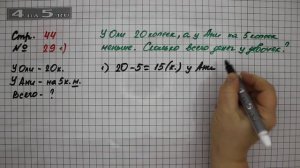 4на5.ru
Стр. 44
№ 29 1)
У Оли 20 копеек, а у Ани на 5 копеек
меньше. Сколько всего денег у девочек?
У Оли - 20 к.
У Ани - на 5 к. м.
Всего - ?
1) 20 - 5 = 15 (к.) у Ани